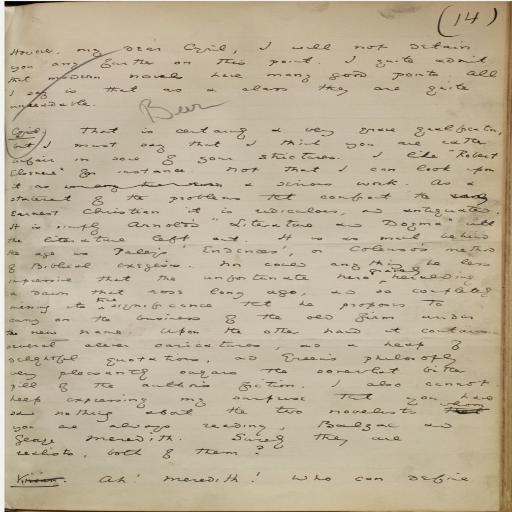 (14)
However, my dear Cyril, I will not detain
you any further on this point. I quite admit
that modern novels have many good points. All
I say is that as a class they are quite
unreadable.
Cyril. That is certainly a very grave qualification,
but I must say that I think you are rather
unfair in some of your strictures. I like "Robert
Elsmere" for instance. Not that I can look upon
it as a serious work. As a
statement of the problems that confront the
earnest Christian it is ridiculous, and antiquated.
It is simply Arnold's "Literature and Dogma" with
the literature left out. It is as much behind
the age as Paley's Evidences, or Colenso's method
of Biblical exegesis. Nor could anything be less
impressive than the unfortunate hero gravely heralding
a dawn that rose long ago, and so completely
missing its true significance that he proposes to
carry on the business of the old firm under
the new name. Upon the other hand it contains
several clever caricatures, and a heap of
delightful quotations, and Green's philosophy
very pleasantly sugars the somewhat bitter
pill of the author's fiction. I also cannot
help expressing my surprise that you have
said nothing about the two novelists whom
you are always reading, Balzac and
George Meredith. Surely they are
realists, both of them?
Vivian. Ah! Meredith! Who can define